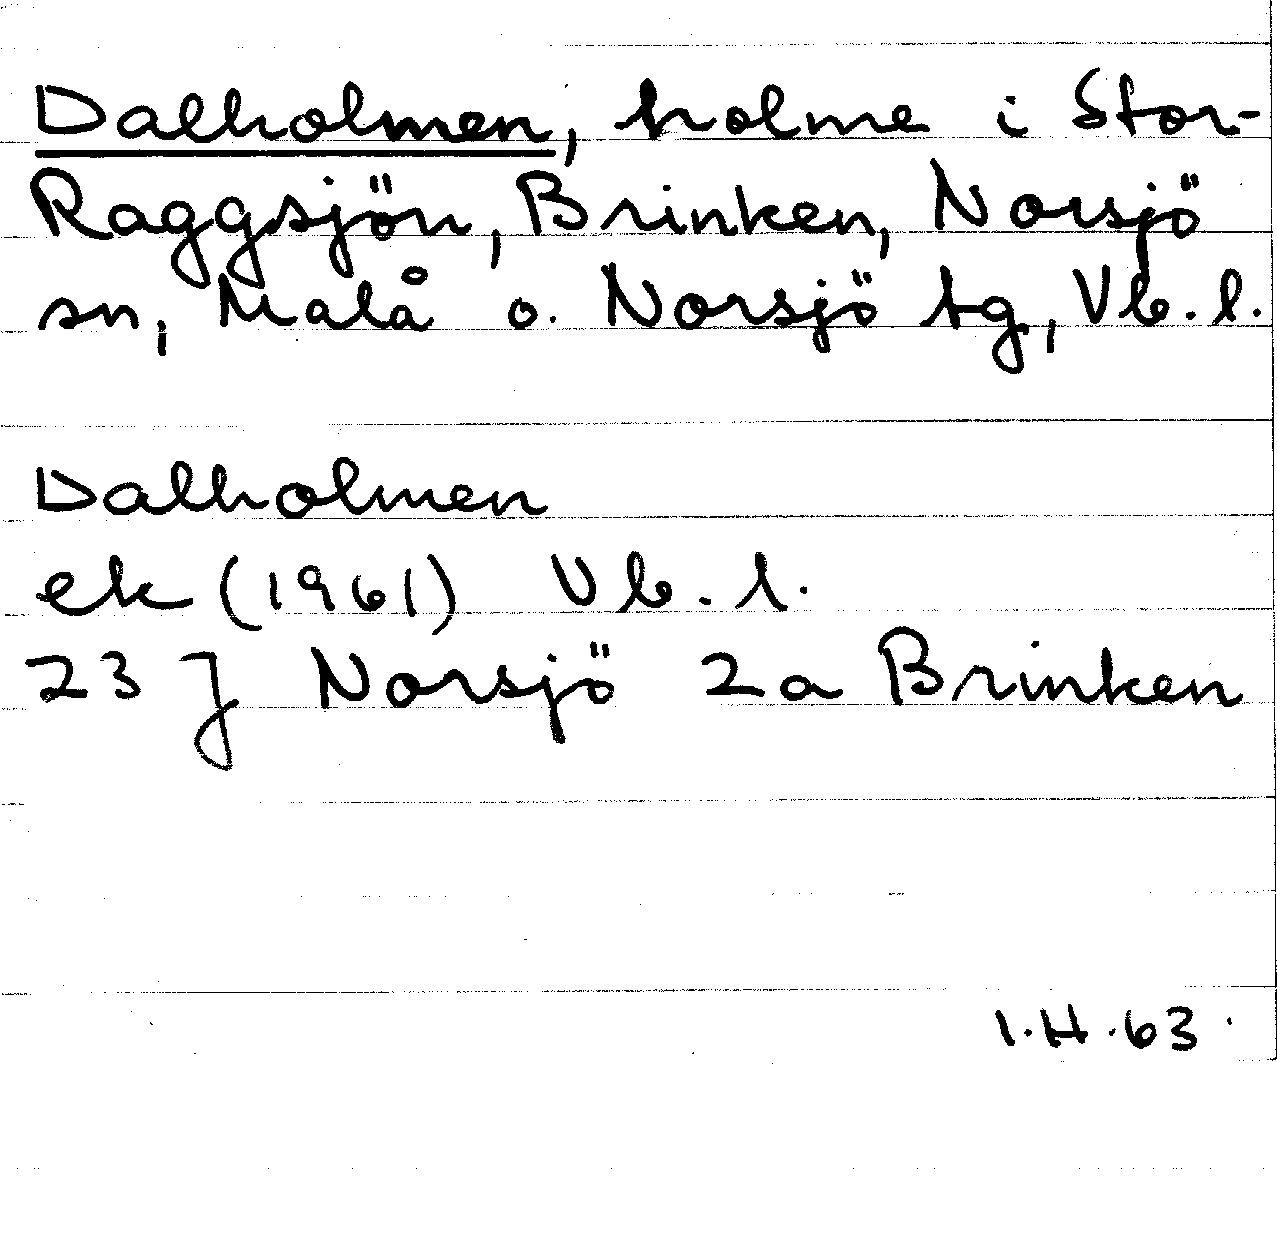 Dalholmen, holme i Stor-
Raggsjön, Brinken, Norsjö
sn, Malå o. Norsjö tg, Vb. l.
Dalholmen
ek (1961) Vb. l.
23 J Norsjö 2a Brinken
I.H.63.